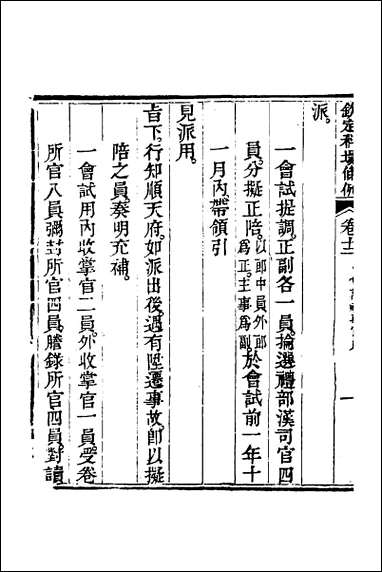 欽定科場條例 卷十二
派。
一會試提調正副各一員。掄選禮部漢司官四
員。分擬正陪。以郎中員外郎爲正。主事爲副。於會試前一年十
一月內帶領引
見派用。
旨下行知順天府。如派出後。遇有陞遷事故。卽以擬
陪之員。奏明充補。
一會試用內收掌官二員。外收掌官一員。受卷
所官八員。彌封所官四員。謄錄所官四員。對讀